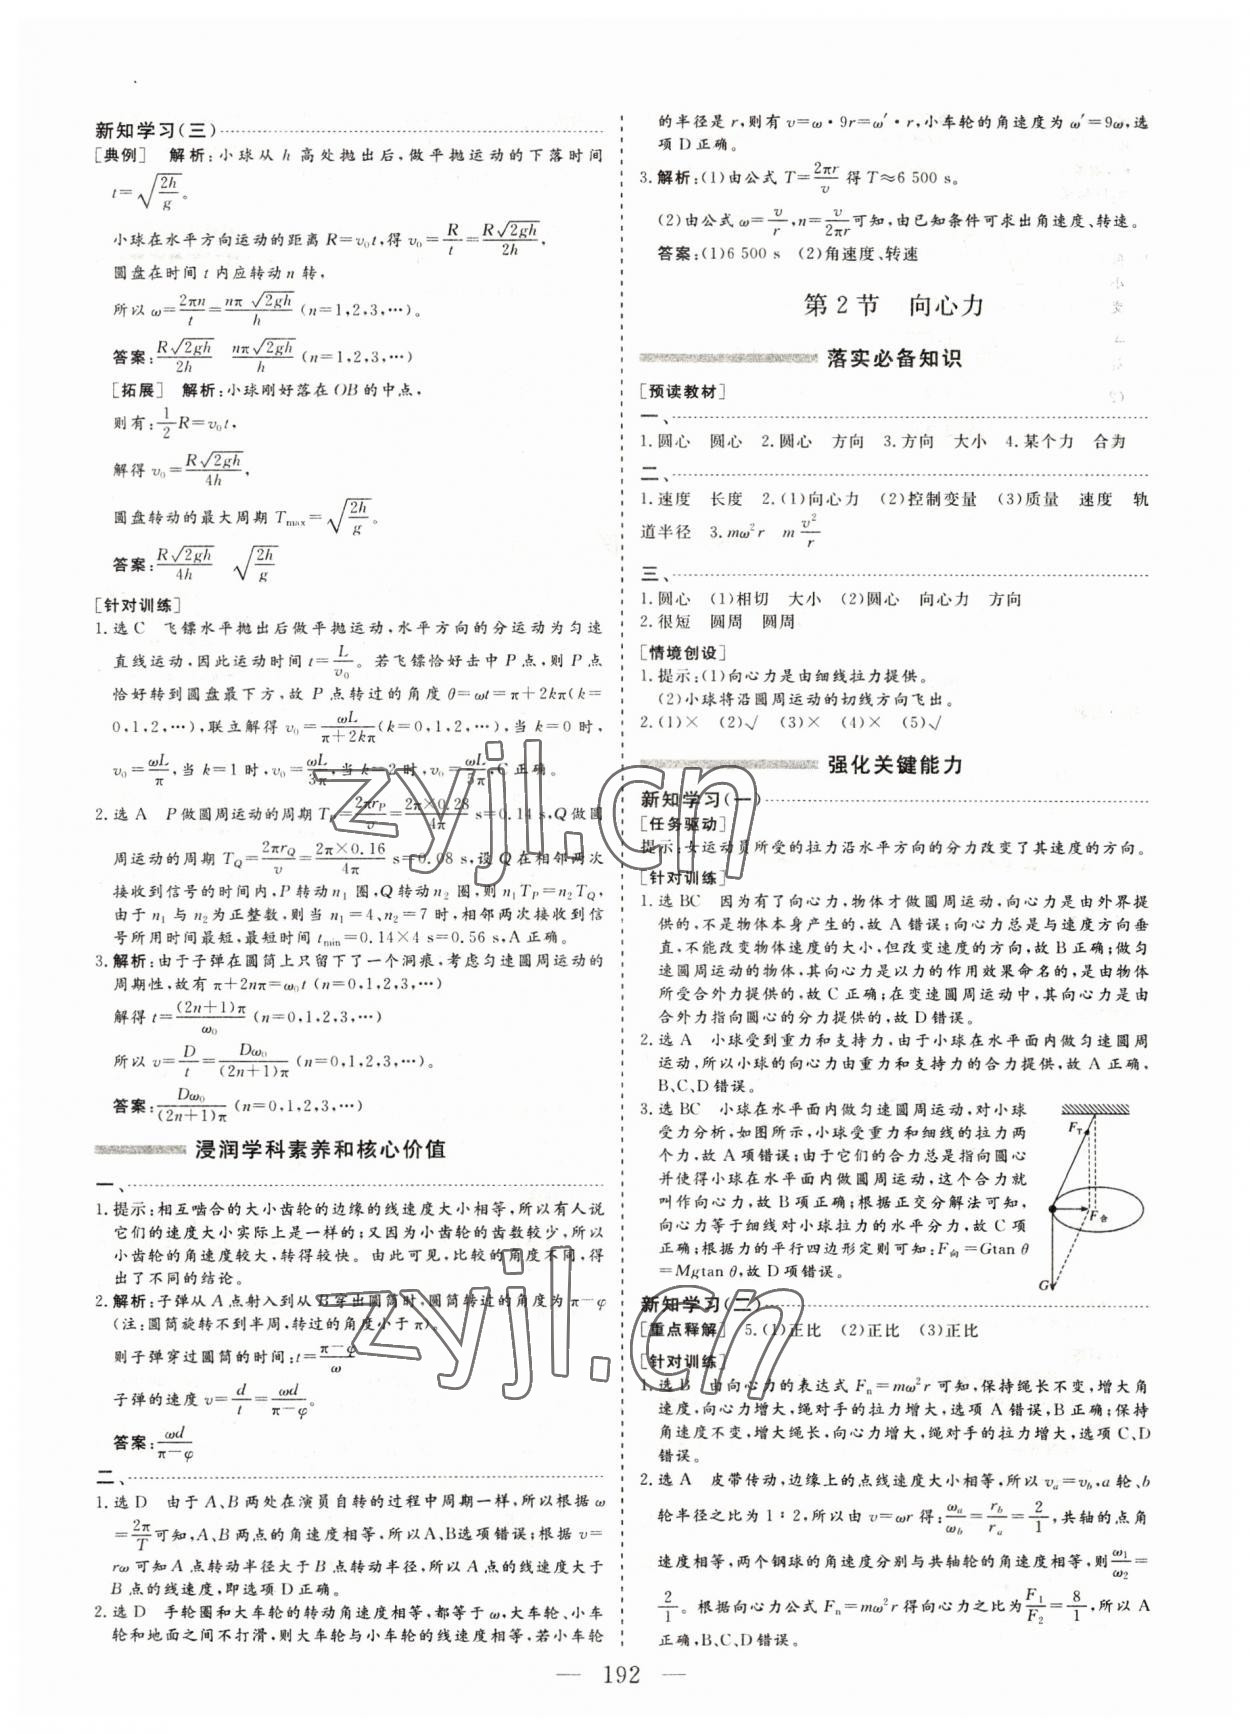 新知学习(三)
[典例] 解析:小球从 h 高处抛出后,做平抛运动的下落时间
t=√(2h/g)。
小球在水平方向运动的距离 R=v₀t,得 v₀=R/t=R√(2gh)/2h,
圆盘在时间 t 内应转动 n 转,
所以 ω=2πn/t=nπ√(2gh)/h (n=1,2,3,…)。
答案:R√(2gh)/2h nπ√(2gh)/h (n=1,2,3,…)
[拓展] 解析:小球刚好落在 OB 的中点,
则有:1/2 R=v₀t,
解得 v₀=R√(2gh)/4h,
圆盘转动的最大周期 Tmax=√(2h/g)。
答案:R√(2gh)/4h √(2h/g)
[针对训练]
1.选C 飞镖水平抛出后做平抛运动,水平方向的分运动为匀速
直线运动,因此运动时间 t=L/v₀。若飞镖恰好击中 P 点,则 P 点
恰好转到圆盘最下方,故 P 点转过的角度 θ=ωt=π+2kπ(k=
0,1,2,…),联立解得 v₀=ωL/(π+2kπ)(k=0,1,2,…),当 k=0 时,
v₀=ωL/π,当 k=1 时,v₀=ωL/3π,当 k=2 时,v₀=ωL/5π,C正确。
2.选A P 做圆周运动的周期 T_P=2πr_P/v=2π×0.28/4π s=0.14 s,Q 做圆
周运动的周期 T_Q=2πr_Q/v=2π×0.16/4π s=0.08 s,设 Q 在相邻两次
接收到信号的时间内,P 转动 n₁ 圈,Q 转动 n₂ 圈,则 n₁T_P=n₂T_Q,
由于 n₁ 与 n₂ 为正整数,则当 n₁=4、n₂=7 时,相邻两次接收到信
号所用时间最短,最短时间 tmin=0.14×4 s=0.56 s,A 正确。
3.解析:由于子弹在圆筒上只留下了一个洞痕,考虑匀速圆周运动的
周期性,故有 π+2nπ=ω₀t(n=0,1,2,3,…)
解得 t=(2n+1)π/ω₀ (n=0,1,2,3,…)
所以 v=D/t=Dω₀/(2n+1)π (n=0,1,2,3,…)。
答案:Dω₀/(2n+1)π (n=0,1,2,3,…)
浸润学科素养和核心价值
一、
1.提示:相互啮合的大小齿轮的边缘的线速度大小相等,所以有人说
它们的速度大小实际上是一样的;又因为小齿轮的齿数较少,所以
小齿轮的角速度较大,转得较快。由此可见,比较的角度不同,得
出了不同的结论。
2.解析:子弹从 A 点射入到从 B 穿出圆筒时,圆筒转过的角度为 π-φ
(注:圆筒旋转不到半周,转过的角度小于 π)。
则子弹穿过圆筒的时间:t=(π-φ)/ω
子弹的速度 v=d/t=ωd/(π-φ)。
答案:ωd/(π-φ)
二、
1.选D 由于 A、B 两处在演员自转的过程中周期一样,所以根据 ω
=2π/T 可知,A、B 两点的角速度相等,所以A、B选项错误;根据 v=
rω 可知 A 点转动半径大于 B 点转动半径,所以 A 点的线速度大于
B 点的线速度,即选项 D 正确。
2.选D 手轮圈和大车轮的转动角速度相等,都等于 ω,大车轮、小车
轮和地面之间不打滑,则大车轮与小车轮的线速度相等,若小车轮
的半径是 r,则有 v=ω·9r=ω′·r,小车轮的角速度为 ω′=9ω,选
项 D 正确。
3.解析:(1)由公式 T=2πr/v 得 T≈6 500 s。
(2)由公式 ω=v/r,n=v/2πr 可知,由已知条件可求出角速度、转速。
答案:(1)6 500 s (2)角速度、转速
第2节 向心力
落实必备知识
[预读教材]
一、
1.圆心 圆心 2.圆心 方向 3.方向 大小 4.某个力 合力
二、
1.速度 长度 2.(1)向心力 (2)控制变量 (3)质量 速度 轨
道半径 3.mω²r m v²/r
三、
1.圆心 (1)相切 大小 (2)圆心 向心力 方向
2.很短 圆周 圆周
[情境创设]
1.提示:(1)向心力是由细线拉力提供。
(2)小球将沿圆周运动的切线方向飞出。
2.(1)× (2)√ (3)× (4)× (5)√
强化关键能力
新知学习(一)
[任务驱动]
提示:女运动员所受的拉力沿水平方向的分力改变了其速度的方向。
[针对训练]
1.选BC 因为有了向心力,物体才做圆周运动,向心力是由外界提
供的,不是物体本身产生的,故 A 错误;向心力总是与速度方向垂
直,不能改变物体速度的大小,但改变速度的方向,故 B 正确;做匀
速圆周运动的物体,其向心力是以力的作用效果命名的,是由物体
所受合外力提供的,故 C 正确;在变速圆周运动中,其向心力是由
合外力指向圆心的分力提供的,故 D 错误。
2.选A 小球受到重力和支持力,由于小球在水平面内做匀速圆周
运动,所以小球的向心力由重力和支持力的合力提供,故 A 正确,
B、C、D 错误。
3.选BC 小球在水平面内做匀速圆周运动,对小球
受力分析,如图所示,小球受重力和细线的拉力两
个力,故 A 项错误;由于它们的合力总是指向圆心
并使得小球在水平面内做圆周运动,这个合力就
叫作向心力,故 B 项正确;根据正交分解法可知,
向心力等于细线对小球拉力的水平分力,故 C 项
正确;根据力的平行四边形定则可知:F向=Gtan θ
=Mgtan θ,故 D 项错误。
F_T
F合
G
新知学习(二)
[重点释解] 5.(1)正比 (2)正比 (3)正比
[针对训练]
1.选B 由向心力的表达式 Fₙ=mω²r 可知,保持绳长不变,增大角
速度,向心力增大,绳对手的拉力增大,选项 A 错误,B 正确;保持
角速度不变,增大绳长,向心力增大,绳对手的拉力增大,选项C、D
错误。
2.选A 皮带传动,边缘上的点线速度大小相等,所以 vₐ=v_b,a 轮、b
轮半径之比为 1∶2,所以由 v=ωr 得:ωₐ/ω_b=r_b/rₐ=2/1,共轴的点角
速度相等,两个钢球的角速度分别与共轴轮的角速度相等,则ω₁/ω₂=
2/1。根据向心力公式 Fₙ=mω²r 得向心力之比为F₁/F₂=8/1,所以 A
正确,B、C、D 错误。
— 192 —
zyjl.cn
zyjl.cn